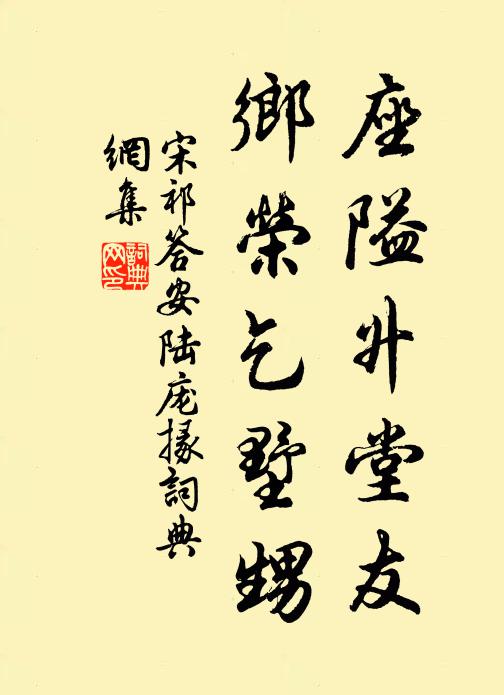 座隘升堂友
鄉榮乞墅甥
宋祁答安陆庞掾詞典
網集
詞典
网印